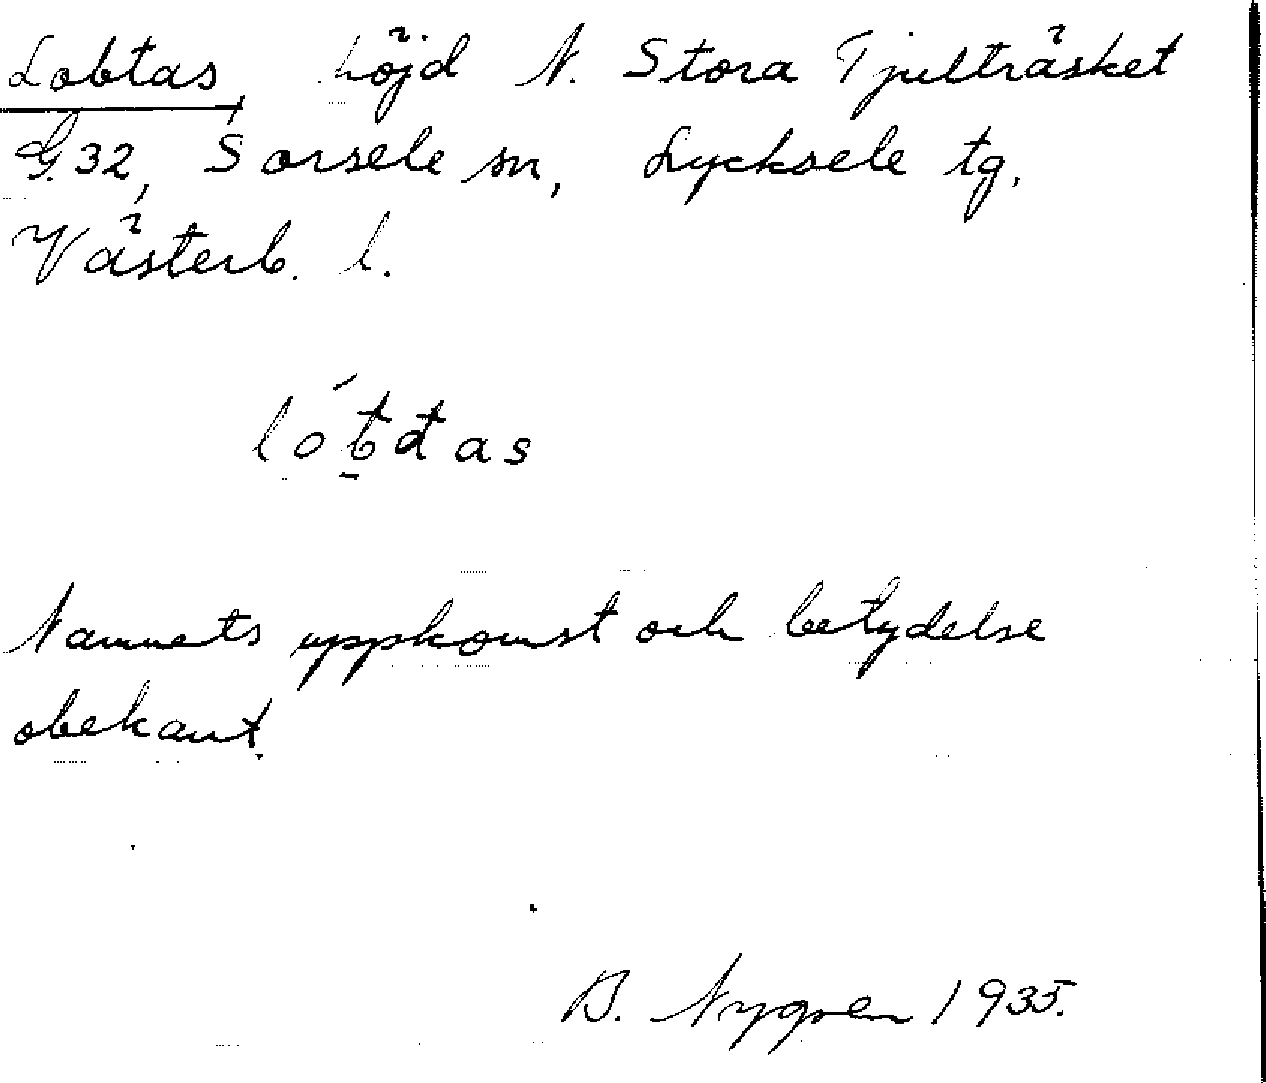 Lobtas, höjd N. Stora Tjulträsket
G.32, Sorsele sn, Lycksele tg,
Västerb. l.
Namnets uppkomst och betydelse
obekant.
B. Nygren 1935.